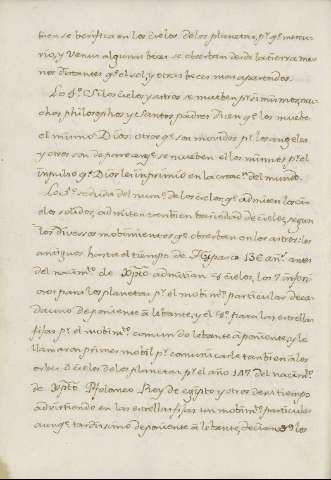 bien se berifica en los cielos de los planetas, pr. qe. mercu-
rio, y Venus algunas beces se obserban desde la tierra me-
nos distantes qe. el sol, y otras beces mas apartados.
Lo 4º. Si los cielos, y astros se mueben pr. si mismos, mu-
chos philosophos, y Santos padres dicen qe. los muebe
el mismo Dios: otros qe. son movidos pr. los angeles
y otros son de parecer qe. se mueben ellos mismos pr. el
impulso qe. Dios les imprimio en la creacn. del mundo.
Lo 5º. se duda del numo. de los cielos qe. admiten los cie-
los solidos, admiten tambien bariedad de cieles, segun
los diversos mobimientos qe. obserban en los astros: los
antiguos hasta el tiempo de Hyparco 136 años antes
del nacimto. de Xpto. admitian 8 cielos, los 7 inferi-
ores para los planetas pr. el mobimto. particular de ca-
da uno de poniente a lebante, y el 8º. para las estrellas
fijas pr. el mobimto. comun de lebante a poniente, y le
llamaron primer mobil pr. comunicarle tambien a los
orbes o cielos de los planetas: pr. el año 147 del nacimto.
de Xpto. Ptolomeo Rey de egipto y otros de su tiempo
advirtiendo en las estrellas fijas un mobimto. particular
aunqe. tardissimo de poniente a lebante, decian qe. los